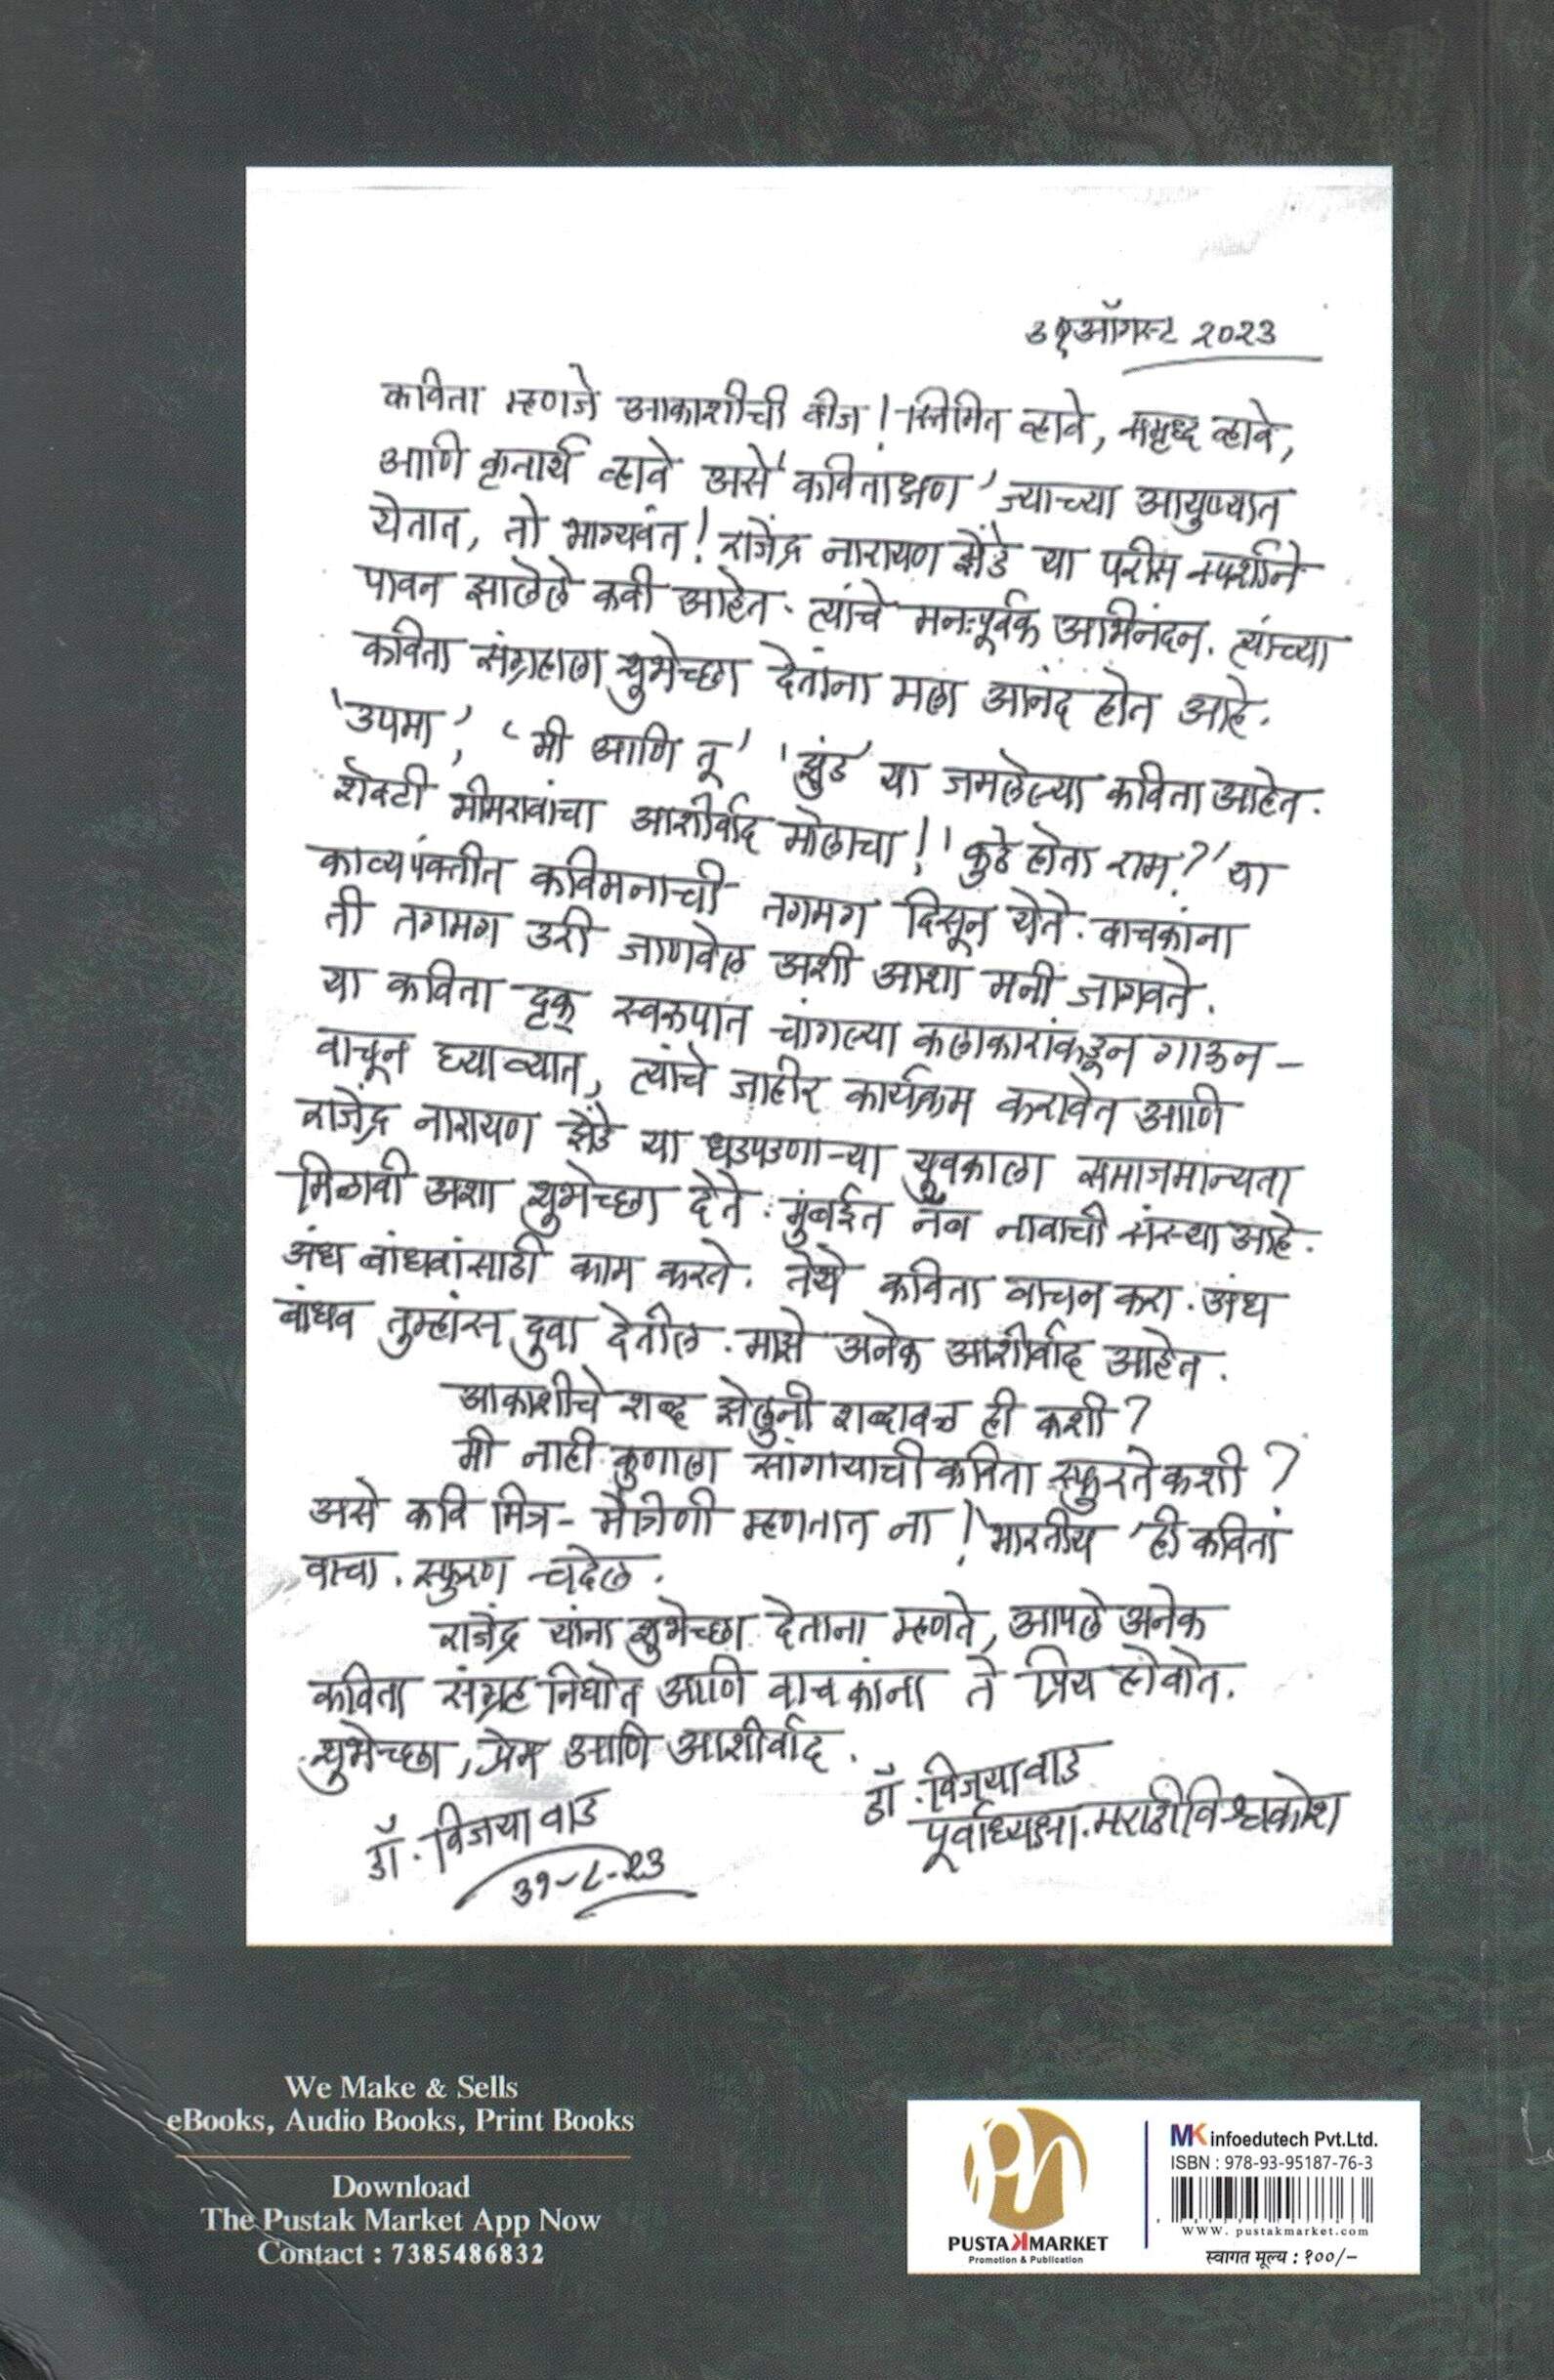 ३१ ऑगस्ट २०२३
कविता म्हणजे आकाशीची वीज! स्तिमित व्हावे, समृध्द व्हावे,
आणि कृतार्थ व्हावे असे 'कविताक्षण' ज्याच्या आयुष्यात
येतात, तो भाग्यवंत! राजेंद्र नारायण झेंडे या परीस स्पर्शाने
पावन झालेले कवी आहेत. त्यांचे मनःपूर्वक अभिनंदन. त्यांच्या
कविता संग्रहाला शुभेच्छा देतांना मला आनंद होत आहे.
'उपमा', 'मी आणि तू' 'झुंड' या जमलेल्या कविता आहेत.
शेवटी भीमरावांचा आशीर्वाद मोलाचा! 'कुठे होता राम?' या
काव्यपंक्तीत कविमनाची तगमग दिसून येते. वाचकांना
ती तगमग उरी जाणवेल अशी आशा मनी जागवते.
या कविता दृक् स्वरूपात चांगल्या कलाकारांकडून गाऊन -
वाचून घ्याव्यात, त्यांचे जाहीर कार्यक्रम करावेत आणि
राजेंद्र नारायण झेंडे या धडपडणाऱ्या युवकाला समाजमान्यता
मिळावी अशा शुभेच्छा देते. मुंबईत नॅब नावाची संस्था आहे.
अंध बांधवांसाठी काम करते. तेथे कविता वाचन करा. अंध
बांधव तुम्हांस दुवा देतील. माझे अनेक आशीर्वाद आहेत.
आकाशीचे शब्द झेलुनी शब्दावळ ही कशी?
मी नाही कुणाला सांगायाची कविता स्फुरते कशी?
असे कवि मित्र - मैत्रिणी म्हणतात ना! 'भारतीय' ही कविता
वाचा. स्फुरण चढेल.
राजेंद्र यांना शुभेच्छा देताना म्हणते, आपले अनेक
कविता संग्रह निघोत आणि वाचकांना ते प्रिय होवोत.
शुभेच्छा, प्रेम आणि आशीर्वाद.
डॉ. विजया वाड
पूर्वाध्यक्षा. मराठी विश्वकोश
डॉ. विजया वाड
३१-८-२३
We Make & Sells
eBooks, Audio Books, Print Books
Download
The Pustak Market App Now
Contact : 7385486832
PUSTAKMARKET
Promotion & Publication
MK infoedutech Pvt.Ltd.
ISBN : 978-93-95187-76-3
www. pustakmarket.com
स्वागत मूल्य : १००/-